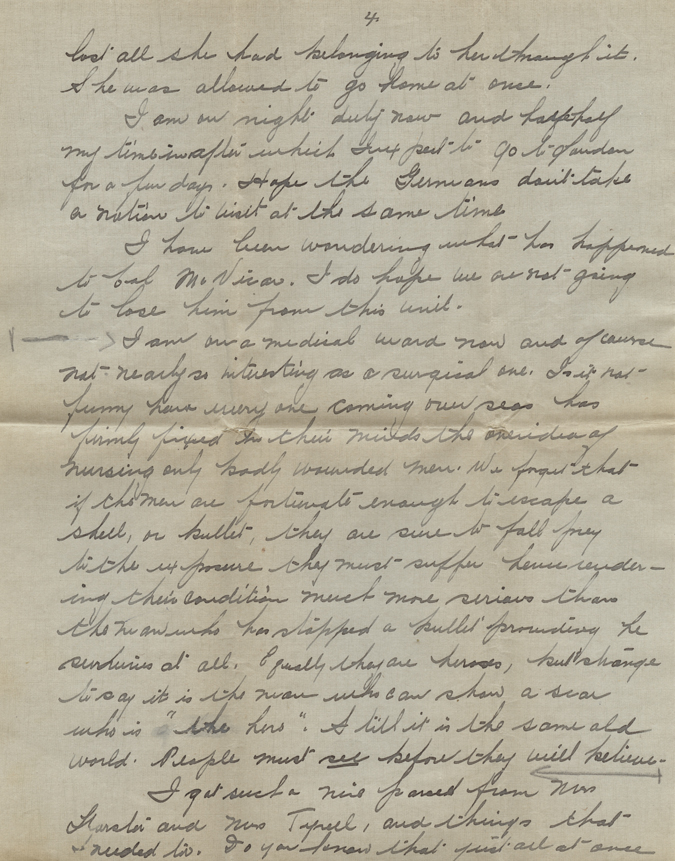 4.
lost all she had belonging to her through it.
She was allowed to go home at once.
I am on night duty now and half
my time in after which I expect to go to London
for a few days. Hope the Germans don't take
a notion to visit at the same time
I have been wondering what has happened
to Cap McVicar. I do hope we are not going
to lose him from this unit.
I am on a medical ward now and of course
not nearly so interesting as a surgical one. Is it not
funny how every one coming over seas has
firmly fixed in their minds the one idea of
nursing only badly wounded men. We forget that
if the men are fortunate enough to escape a
shell, or bullet, they are sure to fall prey
to the exposure they must suffer hence render-
ing their condition much more serious than
the man who has stopped a bullet providing he
survives at all. Equally they are heroes, but strange
to say it is the man who can show a scar
who is "the hero". Still it is the same old
world. People must see before they will believe.
I got such a nice parcel from Mrs
and Mrs Tyrell, and things that
I needed too. Do you know that just all at once